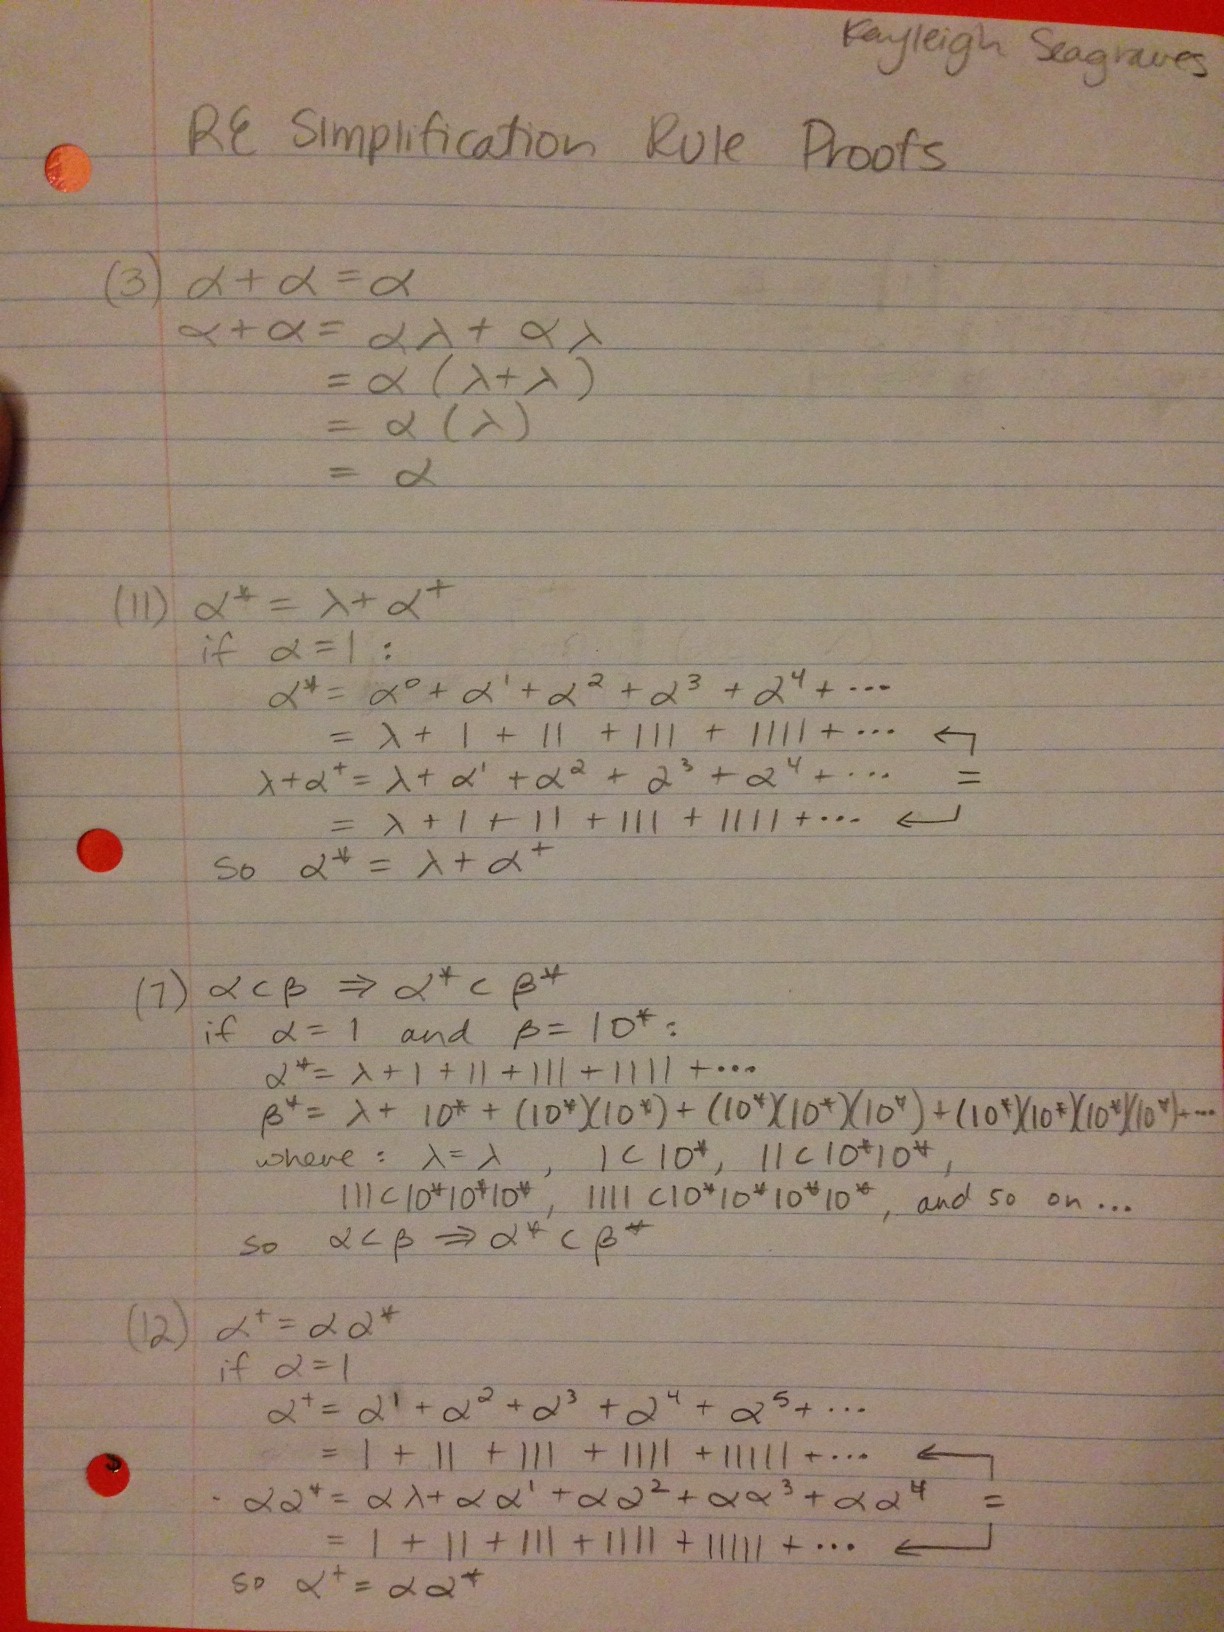 Kayleigh Seagraves
RE Simplification Rule Proofs
(3) α+α=α
α+α= αλ+αλ
= α(λ+λ)
= α(λ)
= α
(11) α* = λ+α⁺
if α=1:
α* = α⁰+α¹+α²+α³+α⁴+...
= λ+1+11+111+1111+...
λ+α⁺=λ+α¹+α²+α³+α⁴+... =
= λ+1+11+111+1111+...
So α* = λ+α⁺
(7) α⊂β ⇒ α*⊂β*
if α=1 and β=10*:
α*=λ+1+11+111+1111+...
β*= λ+ 10* + (10*)(10*)+(10*)(10*)(10*)+(10*)(10*)(10*)(10*)+...
where: λ=λ, 1⊂10*, 11⊂10*10*,
111⊂10*10*10*, 1111⊂10*10*10*10*, and so on...
so α⊂β ⇒ α*⊂β*
(12) α⁺=αα*
if α=1
α⁺=α¹+α²+α³+α⁴+α⁵+...
= 1+11+111+1111+11111+...
αα*=αλ+αα¹+αα²+αα³+αα⁴ =
= 1+11+111+1111+11111+...
so α⁺=αα*